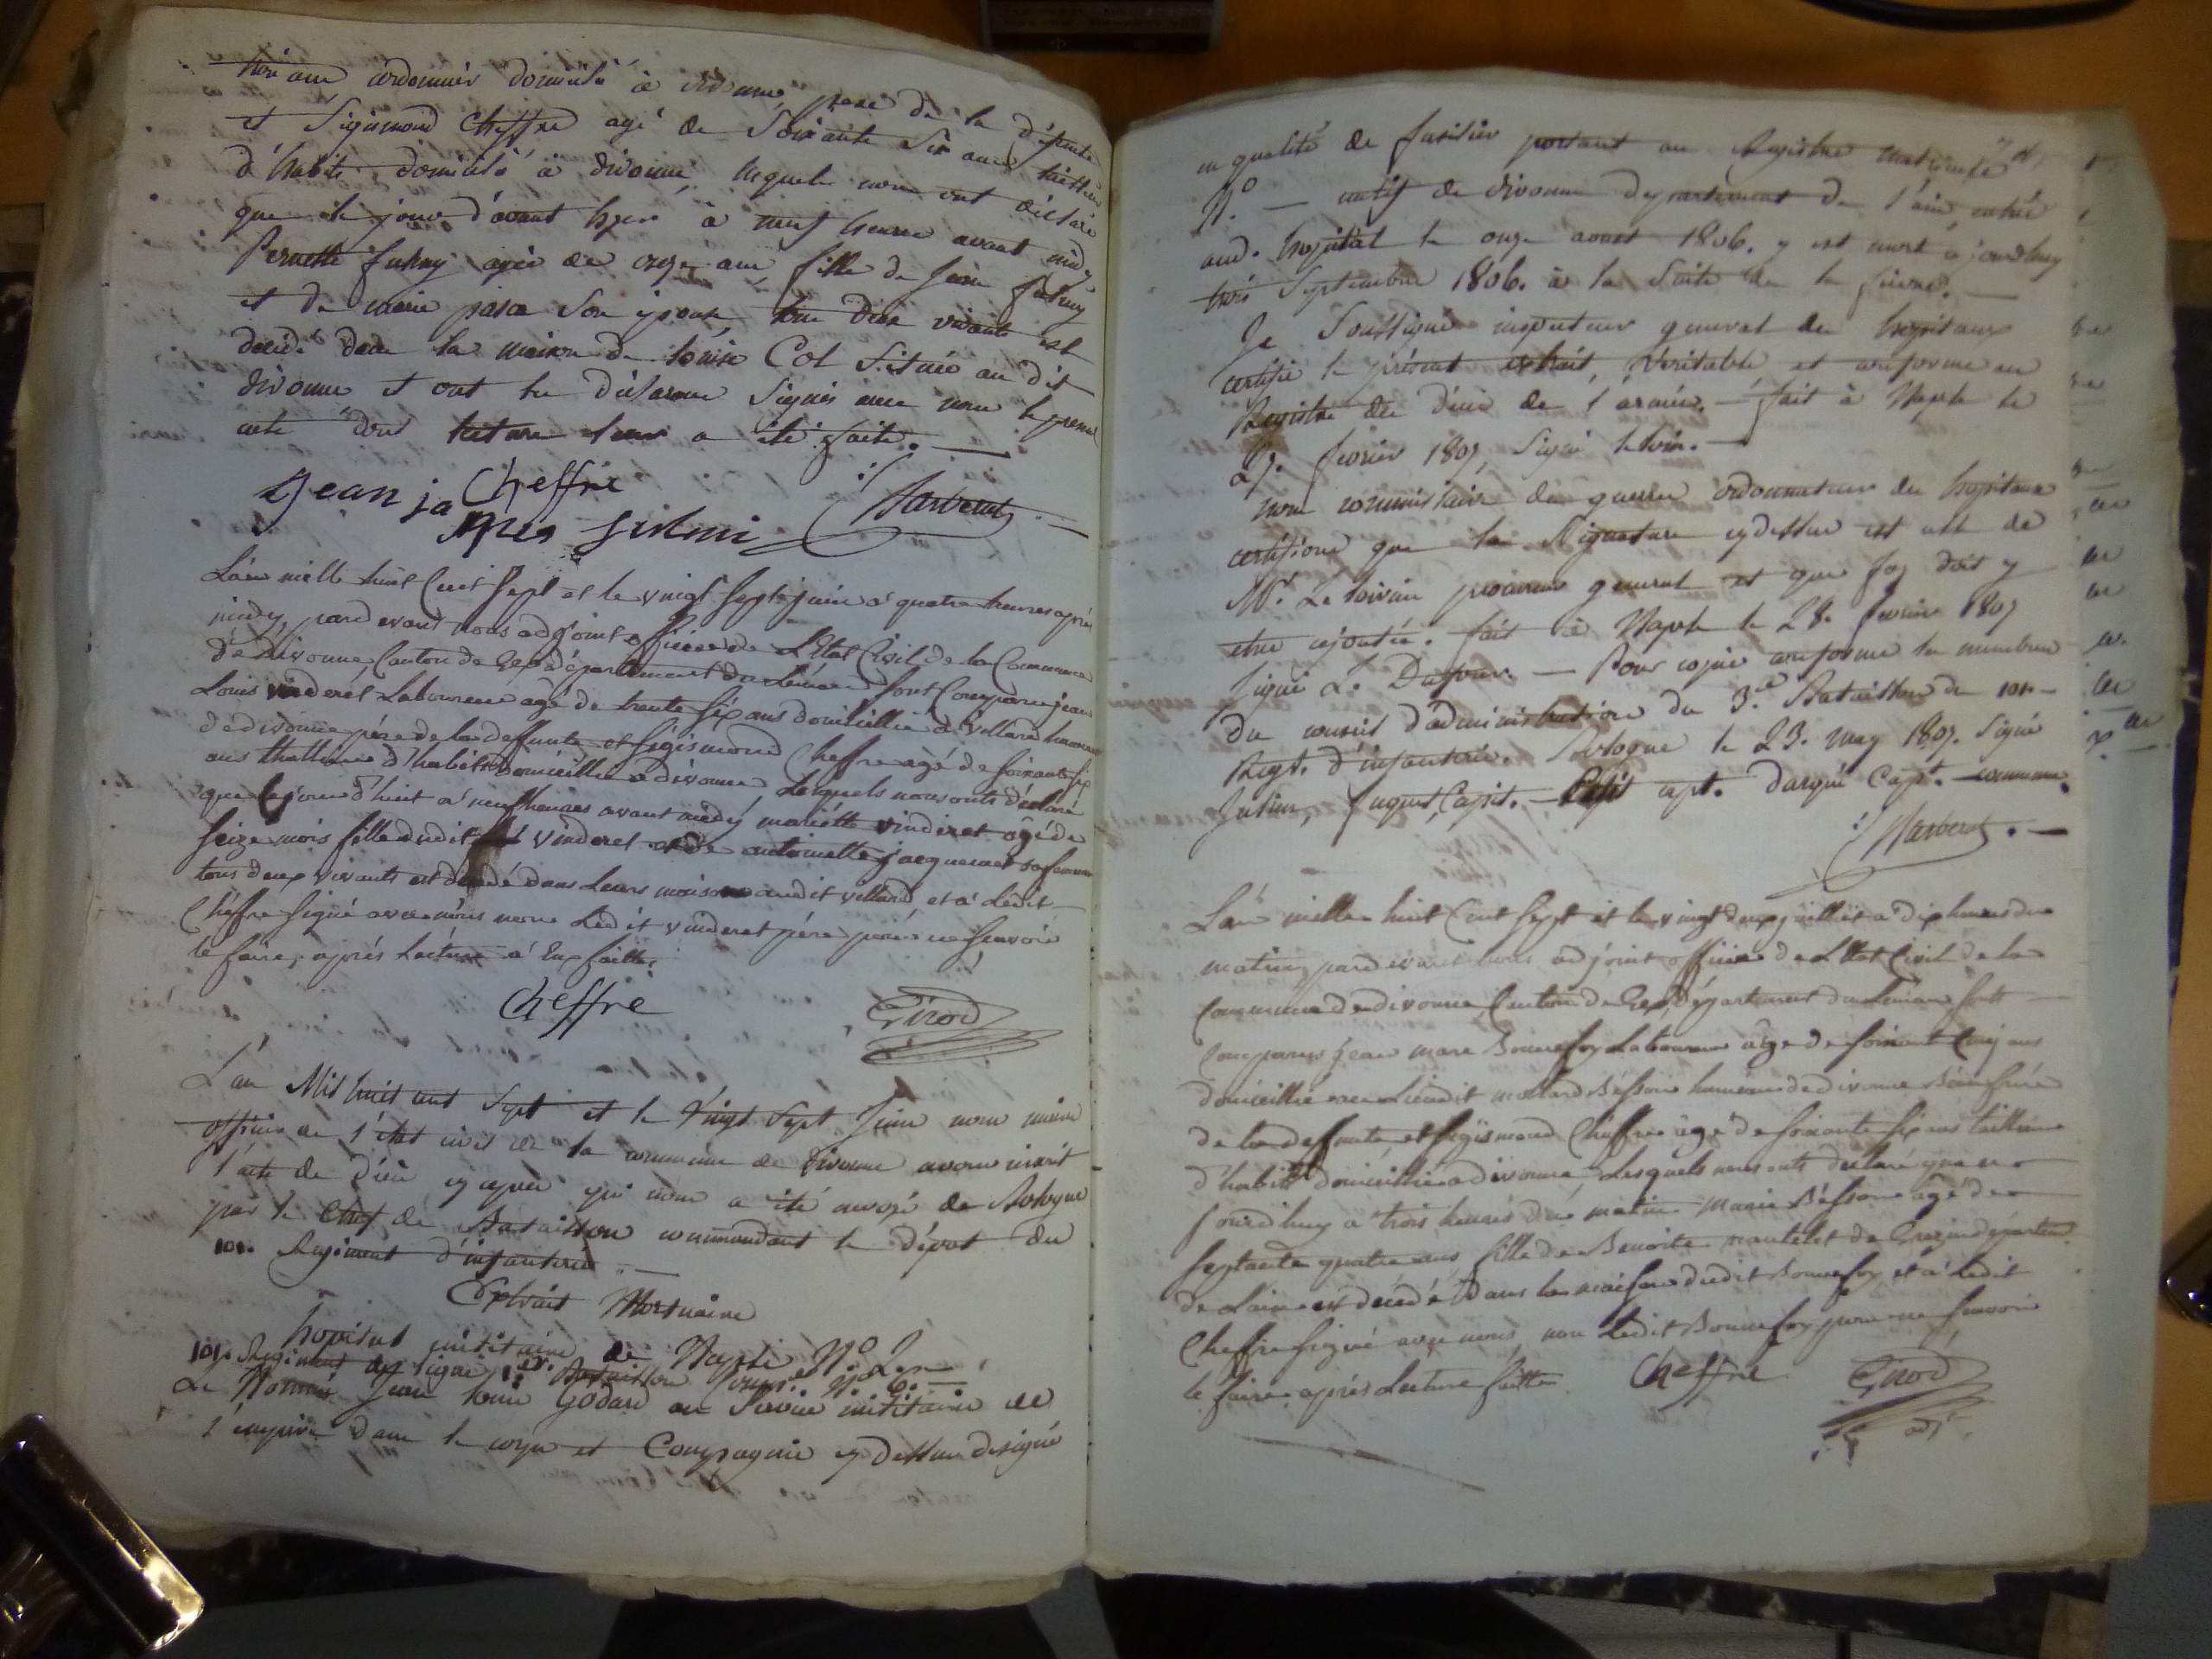 trois ans cordonnier domicilié à divonne pere de la défunte
et Sigismond Cheffre agé de Soixante Six ans tailleur
d'habits domicilié à divonne, lesquels nous ont déclaré
que le jour d'avant hyer à neuf heures avant midy
Pernette Julmy agée de onze ans, fille de Jean Julmy
et de marie pasca Son epouse, tous deux vivants est
décédé dans la maison de Louis Col Située au dit
divonne et ont les déclarans Signés avec nous le present
acte dont lecture leur a été faite.
Jean ja Cheffre
ques Julmi Harverat
L'an mille huit Cent Sept et le vingt Sept juin à quatre heures après
midy, pardevant nous adjoint officier de L'Etat Civil de la Commune
de divonne Canton de Gex département du Léman sont Comparus jean
Louis vinderet Laboureur agé de trente Six ans domicillié à villard hameau
de divonne père de la deffunte et Sigismond Cheffre agé de soixante six
ans thalleur d'habits domicillié à divonne, Lesquels nous onts déclaré
que le jour d'huit à neuf heures avant midy mariette vinderet âgé de
seize mois fille dudit vinderet et de antoinette jacquemet sa femme
tous deux vivants est décédé dans Leurs maison audit villard et à Ledit
Cheffre signé avec nous non Ledit vinderet père pour ne scavoir
le faire, après Lecture à Eux faitte.
Cheffre Girod
L'an Mil huit cent Sept et le Vingt Sept Juin nous maire
officier de l'état civil de la commune de Divonne avons inscrit
l'acte de décés cy après qui nous a été envoyé de Bologne
par le Chef de Bataillon commandant le dépot du
101. Regiment d'infanterie.
Extrait Mortuaire
hopital militaire de Naples N.o 2.
101. Regiment de ligne 1.er Bataillon Comp.e N.o 6.
Le Nommé Jean Louis Godard au Service militaire de
l'empire dans le corps et Compagnie cy dessus designé
en qualité de fusilier portant au Registre matricule
N.o — natif de divonne departement de l'ain, entré
aud. hopital le onze aoust 1806. y est mort à jourdhuy
trois Septembre 1806. à la Suite de la fievre.
Je Soussigné inspecteur general des hopitaux
certifie le présent extrait, veritable et conforme au
Registre des décés de l'armée. — fait à Naples le
27. fevrier 1807 Signé
nous commissaire des guerres ordonnateur des hopitaux
certifions que la Signature cydessus est celle de
Mr. general et que foy doit y
etre ajoutée. fait à Naples le 28. fevrier 1807
Signé L. Dufour. — Pour copie conforme les membres
du conseil d'administration du 3.e Bataillon du 101.
Regt. d'infanterie. Bologne le 23. may 1807. Signé
Julien, Capit. — Petit capt. Capt. commm.
Harverat.
L'an mille huit Cent Sept et le vingt deux juilliet à dix heures du
matin, pardevant nous adjoint officier de L'Etat Civil de la
Commune de divonne, Canton de Gex, département du Léman sont
Comparus jean marc Bonnefoy Laboureur âgé de soixante Cinq ans
domicillié au Lieudit mollard Besson hameau de divonne Beaufrère
de la deffunte, et Sigismond Cheffre âgé de soixante six ans tailleur
d'habits domicillié à divonne Lesquels nous onts déclaré que ce
jourd'huy à trois heures du matin marie Besson âgé de
septante quatre ans fille de Benoite nantelet de departem
de Lain est décédé dans la maison dudit Bonnefoy et à Ledit
Cheffre signé avec nous non Ledit Bonnefoy pour ne scavoir
le faire après Lecture faitte Cheffre Girod
adj.